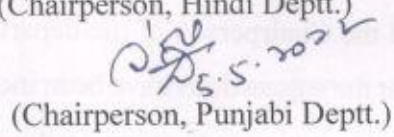 (Chairperson, Hindi Deptt.)
5.5.2022
(Chairperson, Punjabi Deptt.)